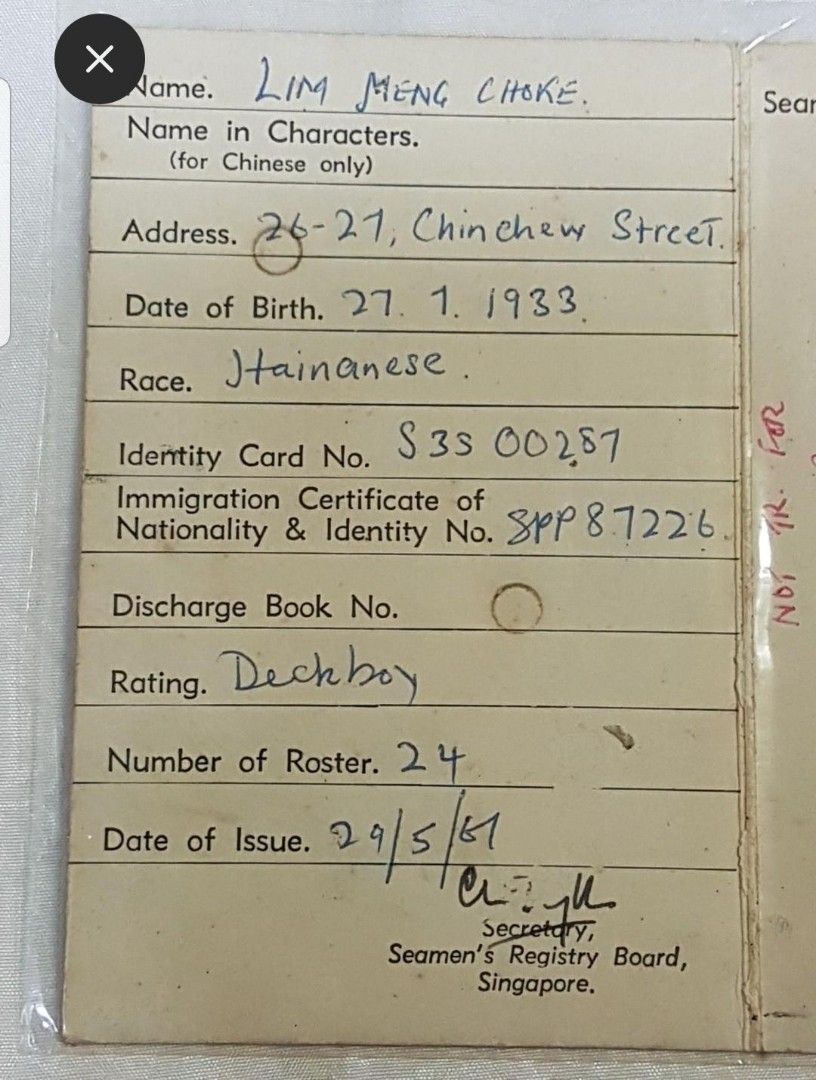 Name. LIM MENG CHOKE.
Name in Characters.
(for Chinese only)
Address. 26-27, Chin chew Street.
Date of Birth. 27. 7. 1933
Race. Hainanese.
Identity Card No. S 3S 00287
Immigration Certificate of
Nationality & Identity No. SPP 87226.
Discharge Book No.
Rating. Deckboy
Number of Roster. 24
Date of Issue. 29/5/61
Secretary,
Seamen's Registry Board,
Singapore.
Sear
NOT TR. FOR